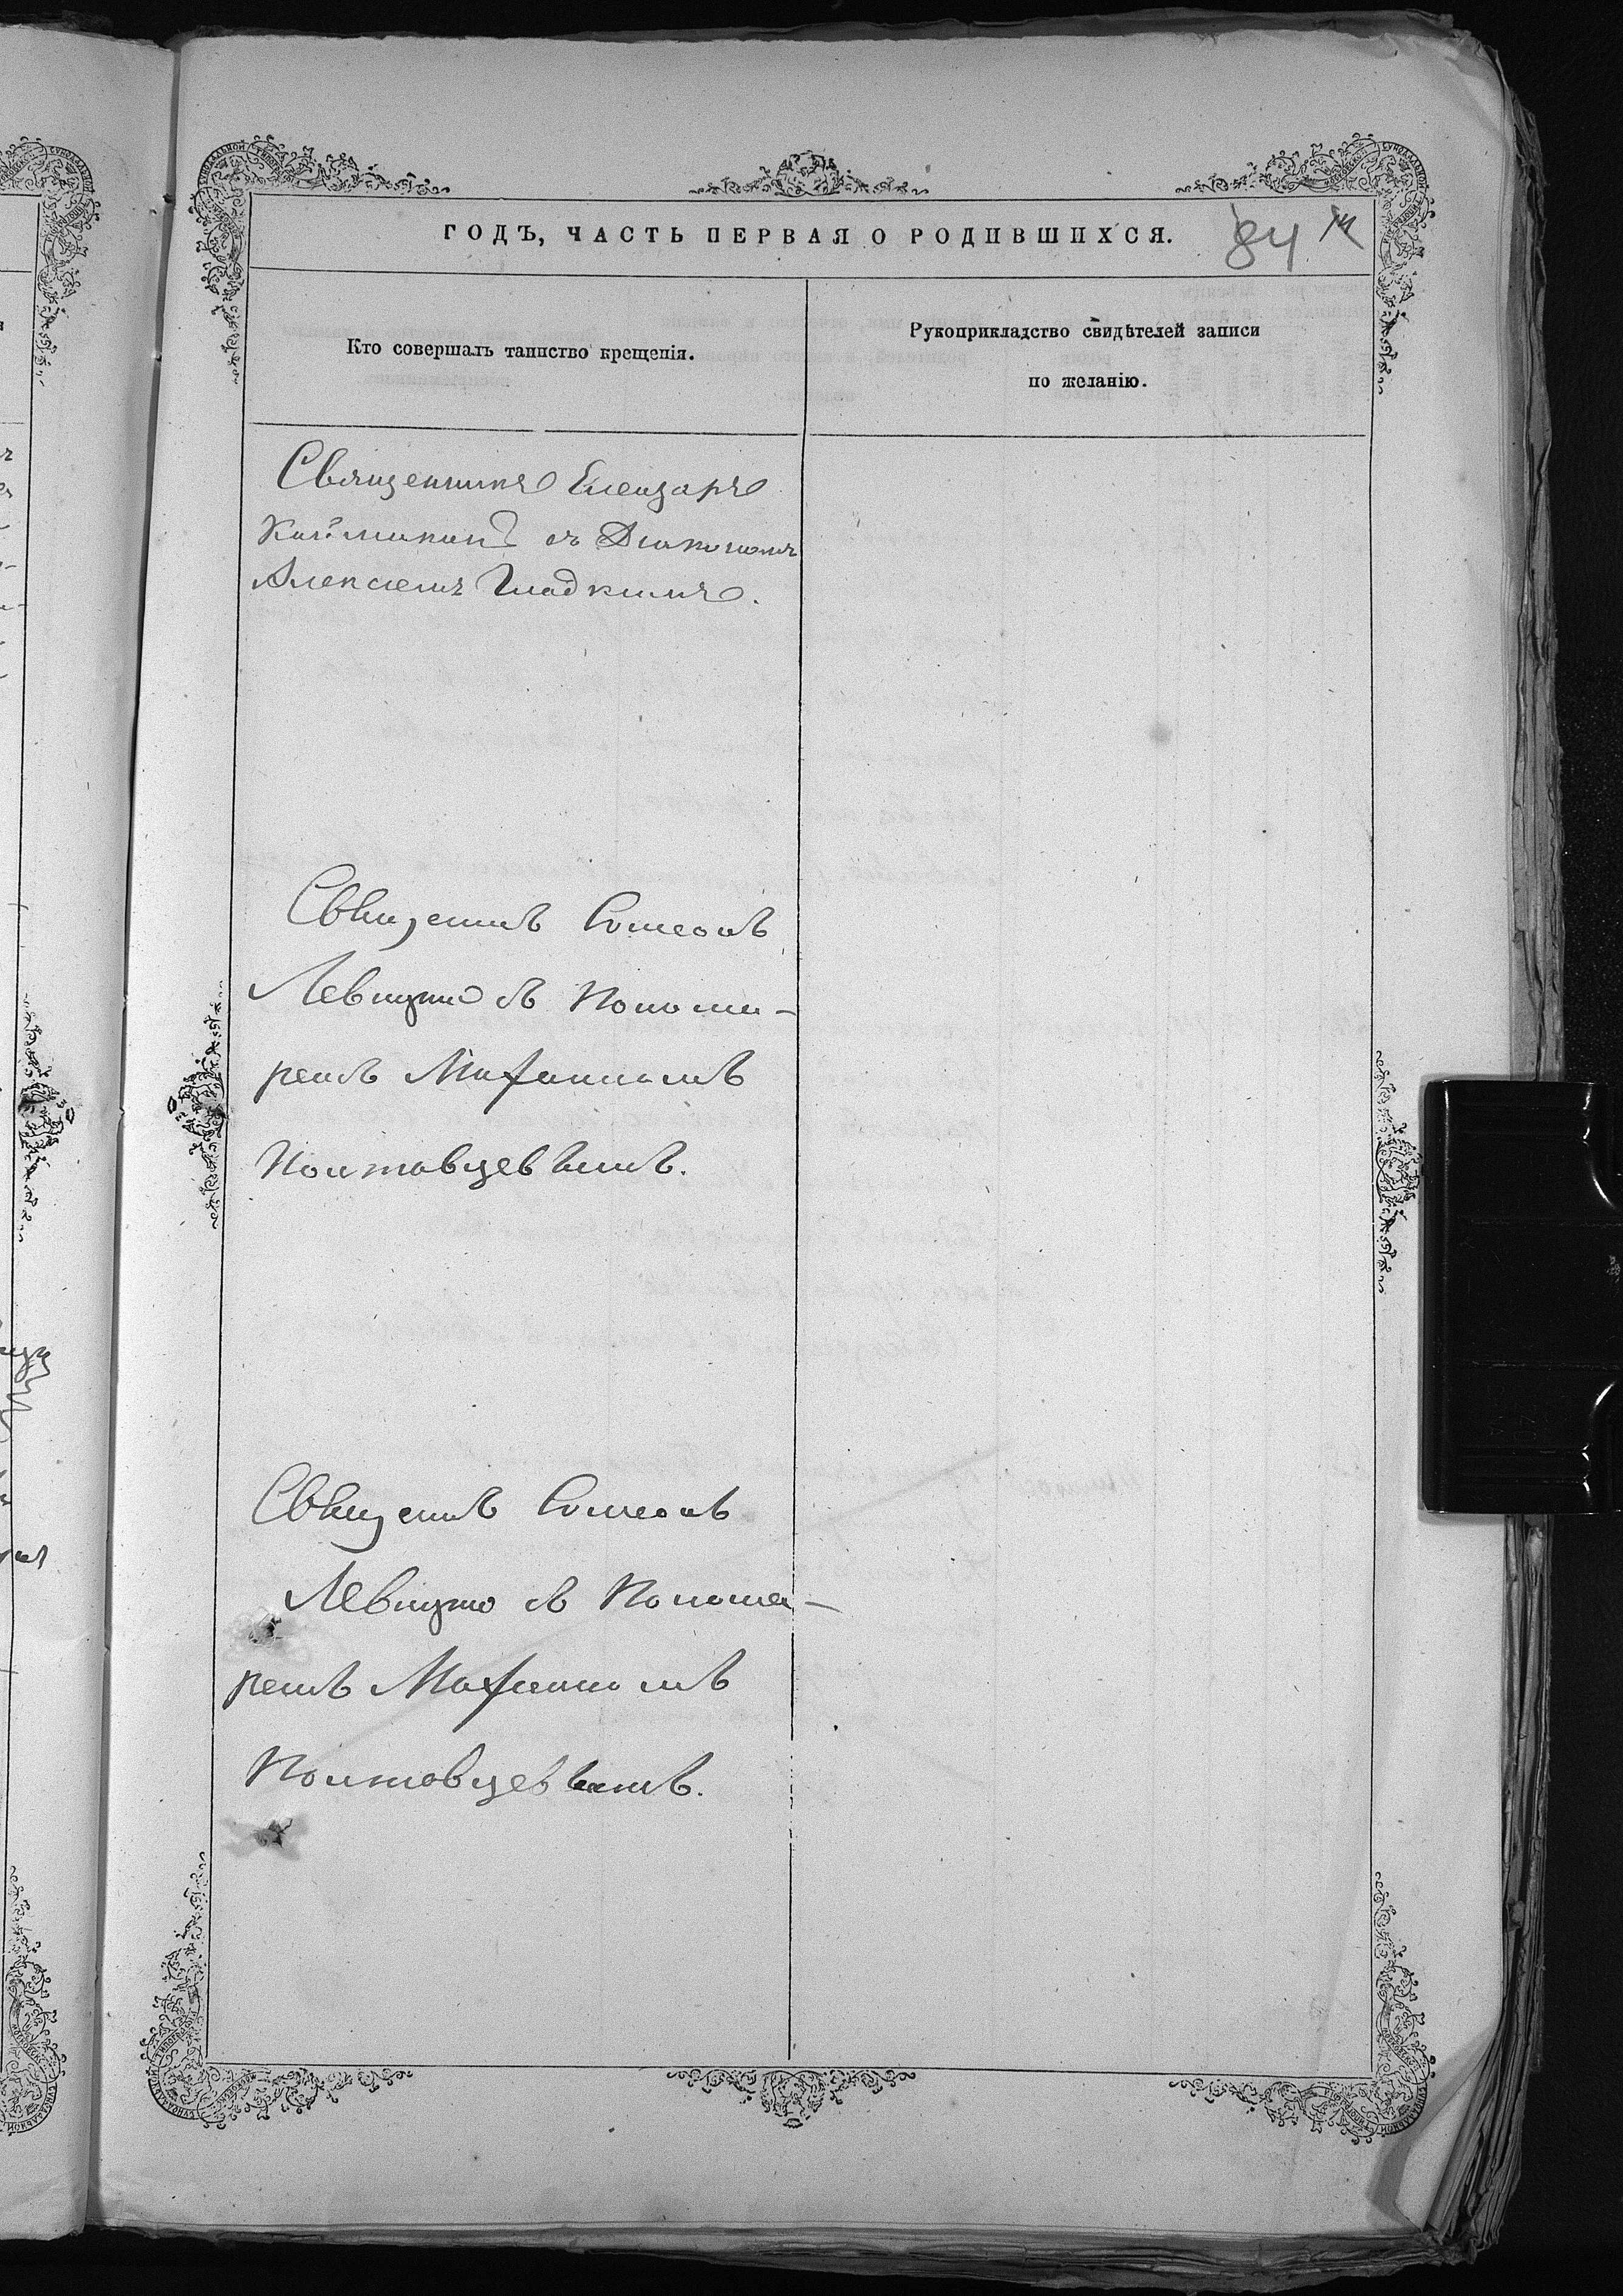 ГОДЪ, ЧАСТЬ ПЕРВАЯ О РОДИВШИХСЯ.
84
Кто совершалъ таинство крещенія.
Рукоприкладство свидѣтелей записи
по желанію.
Священникъ Елеазаръ
съ Діакономъ
Алексіемъ Гладкимъ.
Священникъ Симеонъ
Левицкій съ Понома-
ремъ Михаиломъ
Полтавцевымъ.
Священникъ Симеонъ
Левицкій съ Понома-
ремъ Михаиломъ
Полтавцевымъ.